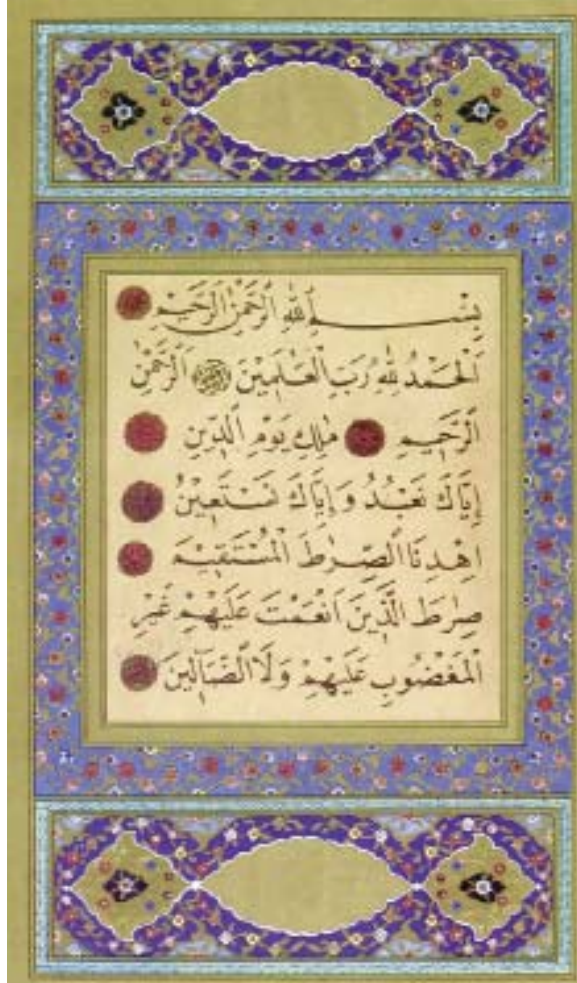 بِسْمِ اللّٰهِ الرَّحْمٰنِ الرَّحِيمِ
اَلْحَمْدُ لِلّٰهِ رَبِّ الْعٰلَمِينَ اَلرَّحْمٰنِ
الرَّحِيمِ مٰلِكِ يَوْمِ الدِّينِ
اِيَّاكَ نَعْبُدُ وَاِيَّاكَ نَسْتَعِينُ
اِهْدِنَا الصِّرٰطَ الْمُسْتَقِيمَ
صِرٰطَ الَّذِينَ اَنْعَمْتَ عَلَيْهِمْ غَيْرِ
الْمَغْضُوبِ عَلَيْهِمْ وَلَا الضَّٓالِّينَ